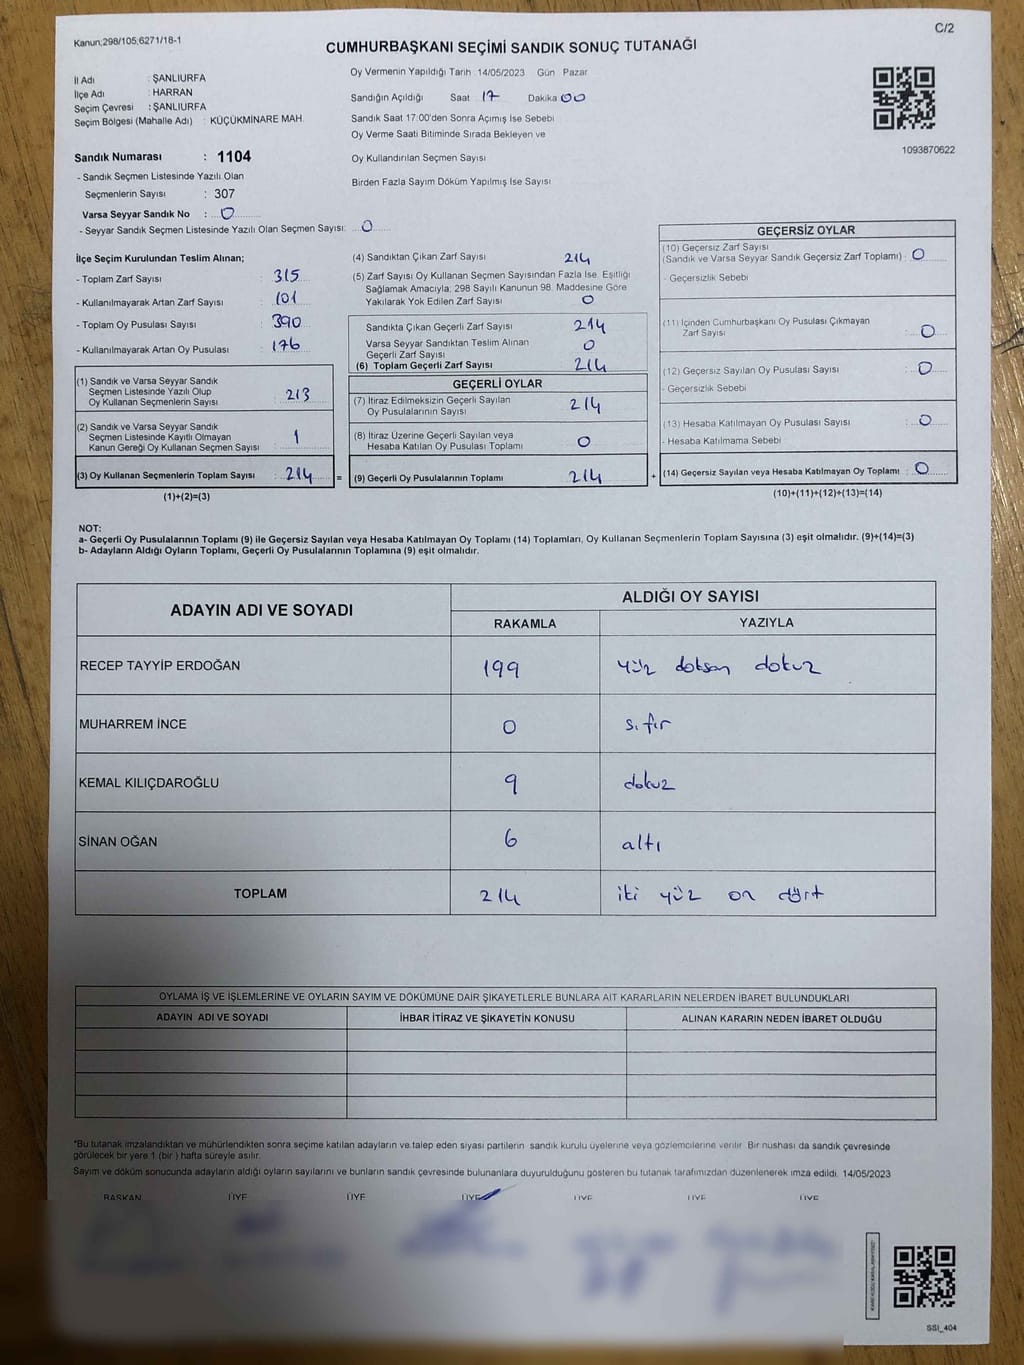 Kanun;298/105;6271/18-1
C/2
CUMHURBAŞKANI SEÇİMİ SANDIK SONUÇ TUTANAĞI
İl Adı : ŞANLIURFA
İlçe Adı : HARRAN
Seçim Çevresi : ŞANLIURFA
Seçim Bölgesi (Mahalle Adı) : KÜÇÜKMİNARE MAH.
Sandık Numarası : 1104
- Sandık Seçmen Listesinde Yazılı Olan
Seçmenlerin Sayısı : 307
Varsa Seyyar Sandık No : 0
- Seyyar Sandık Seçmen Listesinde Yazılı Olan Seçmen Sayısı: 0
Oy Vermenin Yapıldığı Tarih :14/05/2023 Gün Pazar
Sandığın Açıldığı Saat 17 Dakika 00
Sandık Saat 17:00'den Sonra Açımış İse Sebebi
Oy Verme Saati Bitiminde Sırada Bekleyen ve
Oy Kullandırılan Seçmen Sayısı
Birden Fazla Sayım Döküm Yapılmış İse Sayısı
1093870622
İlçe Seçim Kurulundan Teslim Alınan;
- Toplam Zarf Sayısı : 315
- Kullanılmayarak Artan Zarf Sayısı : 101
- Toplam Oy Pusulası Sayısı : 390
- Kullanılmayarak Artan Oy Pusulası : 176
(1) Sandık ve Varsa Seyyar Sandık
Seçmen Listesinde Yazılı Olup
Oy Kullanan Seçmenlerin Sayısı : 213
(2) Sandık ve Varsa Seyyar Sandık
Seçmen Listesinde Kayıtlı Olmayan
Kanun Gereği Oy Kullanan Seçmen Sayısı : 1
(3) Oy Kullanan Seçmenlerin Toplam Sayısı : 214 =
(1)+(2)=(3)
(4) Sandıktan Çıkan Zarf Sayısı 214
(5) Zarf Sayısı Oy Kullanan Seçmen Sayısından Fazla İse, Eşitliği
Sağlamak Amacıyla; 298 Sayılı Kanunun 98. Maddesine Göre
Yakılarak Yok Edilen Zarf Sayısı 0
Sandıkta Çıkan Geçerli Zarf Sayısı 214
Varsa Seyyar Sandıktan Teslim Alınan
Geçerli Zarf Sayısı 0
(6) Toplam Geçerli Zarf Sayısı 214
GEÇERLİ OYLAR
(7) İtiraz Edilmeksizin Geçerli Sayılan
Oy Pusulalarının Sayısı 214
(8) İtiraz Üzerine Geçerli Sayılan veya
Hesaba Katılan Oy Pusulası Toplamı 0
(9) Geçerli Oy Pusulalarının Toplamı 214 +
GEÇERSİZ OYLAR
(10) Geçersiz Zarf Sayısı
(Sandık ve Varsa Seyyar Sandık Geçersiz Zarf Toplamı) : 0
- Geçersizlik Sebebi
(11) İçinden Cumhurbaşkanı Oy Pusulası Çıkmayan
Zarf Sayısı : 0
(12) Geçersiz Sayılan Oy Pusulası Sayısı : 0
- Geçersizlik Sebebi
(13) Hesaba Katılmayan Oy Pusulası Sayısı : 0
- Hesaba Katılmama Sebebi
(14) Geçersiz Sayılan veya Hesaba Katılmayan Oy Toplamı : 0
(10)+(11)+(12)+(13)=(14)
NOT:
a- Geçerli Oy Pusulalarının Toplamı (9) ile Geçersiz Sayılan veya Hesaba Katılmayan Oy Toplamı (14) Toplamları, Oy Kullanan Seçmenlerin Toplam Sayısına (3) eşit olmalıdır. (9)+(14)=(3)
b- Adayların Aldığı Oyların Toplamı, Geçerli Oy Pusulalarının Toplamına (9) eşit olmalıdır.
ADAYIN ADI VE SOYADI ALDIĞI OY SAYISI
RAKAMLA YAZIYLA
RECEP TAYYİP ERDOĞAN 199 yüz doksan dokuz
MUHARREM İNCE 0 sıfır
KEMAL KILIÇDAROĞLU 9 dokuz
SİNAN OĞAN 6 altı
TOPLAM 214 iki yüz on dört
OYLAMA İŞ VE İŞLEMLERİNE VE OYLARIN SAYIM VE DÖKÜMÜNE DAİR ŞİKAYETLERLE BUNLARA AİT KARARLARIN NELERDEN İBARET BULUNDUKLARI
ADAYIN ADI VE SOYADI İHBAR İTİRAZ VE ŞİKAYETİN KONUSU ALINAN KARARIN NEDEN İBARET OLDUĞU
*Bu tutanak imzalandıktan ve mühürlendikten sonra seçime katılan adayların ve talep eden siyasi partilerin sandık kurulu üyelerine veya gözlemcilerine verilir. Bir nüshası da sandık çevresinde
görülecek bir yere 1 (bir ) hafta süreyle asılır.
Sayım ve döküm sonucunda adayların aldığı oyların sayılarını ve bunların sandık çevresinde bulunanlara duyurulduğunu gösteren bu tutanak tarafımızdan düzenlenerek imza edildi. 14/05/2023
BAŞKAN ÜYE ÜYE ÜYE ÜYE ÜYE ÜYE
SSI_404